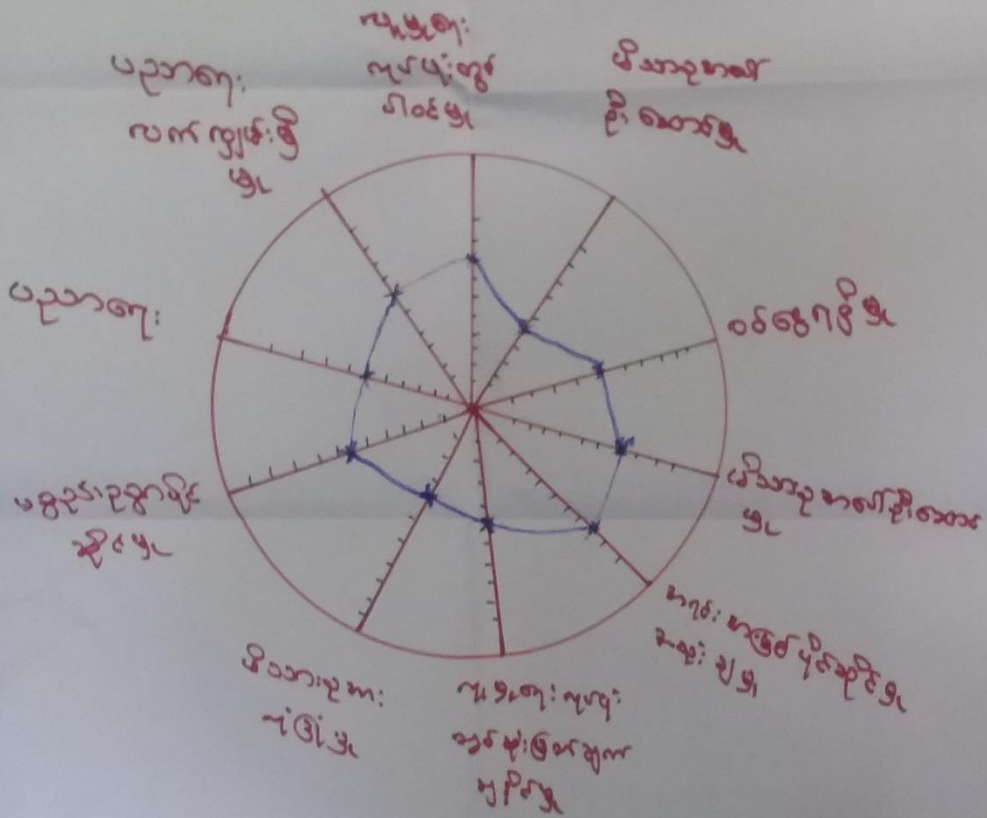 လူမှုရေး
လုပ်ငန်းတွင်
ပါဝင်မှု
မိသားစုအပေါ်
ဦးဆောင်မှု
ဝင်ငွေရရှိမှု
မိသားစုအပေါ်ဦးဆောင်
မှု
ပိုင်ဆိုင်မှု
လူမှုရေးလုပ်ငန်း
တွင်ဆုံးဖြတ်ချက်
ချနိုင်မှု
မိသားစုအား
ပစ္စည်းဥစ္စာပိုင်
ဆိုင်မှု
ပညာရေး
ပညာရေး
လက်လှမ်းမှီ
မှု